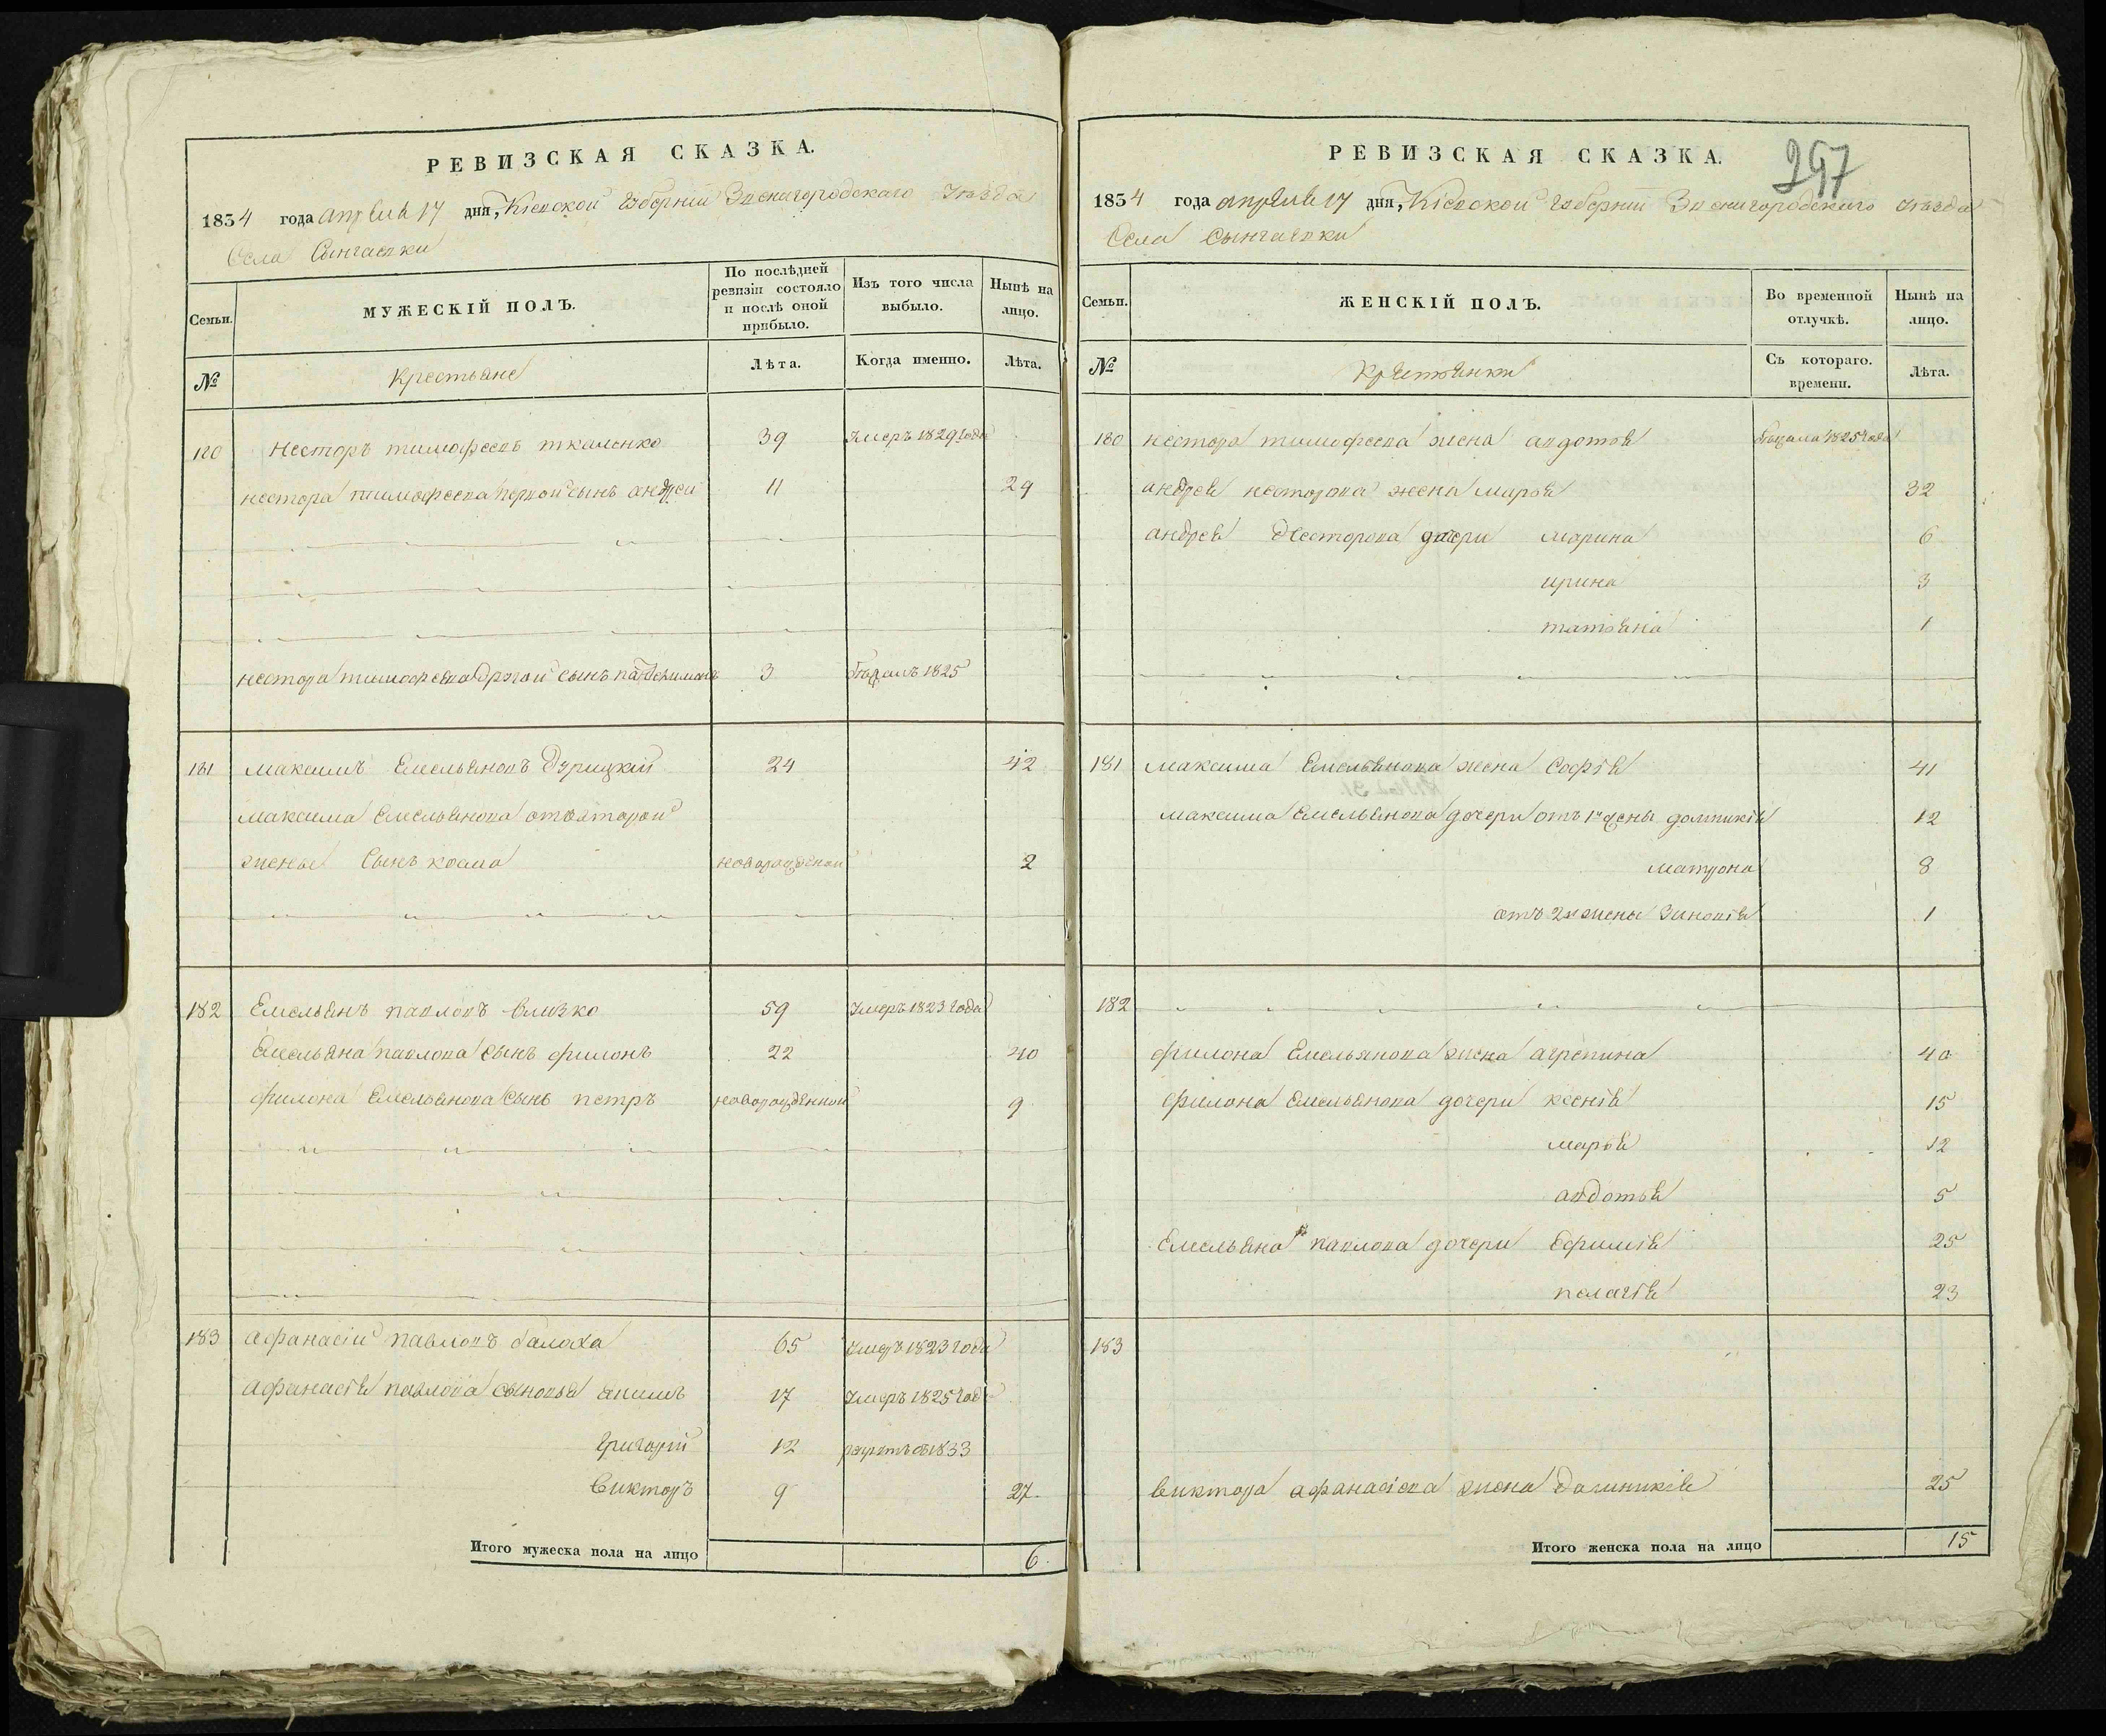 РЕВИЗСКАЯ СКАЗКА.
1834 года апреля 17 дня, Кіевской Губерніи Звенигородскаго уезда
Села Сынгаевки
Семьи.
МУЖЕСКІЙ ПОЛЪ.
По послѣдней ревизіи состояло и послѣ оной прибыло.
Изъ того числа выбыло.
Нынѣ на лицо.
№
Крестьяне
Лѣта.
Когда именно.
Лѣта.
180 Несторъ тимофеевъ ткаленко 39 умеръ 1829 года
нестора тимофеева первой сынъ андрей 11 29
нестора тимофеева другой сынъ 3 бежалъ 1825
181 максимъ Емельяновъ 24 42
максима Емельянова отвторой
жены Сынъ косма новорожденой 2
182 Емельянъ павловъ близко 59 умеръ 1823 года
Емельяна павлова сынъ филонъ 22 40
филона Емельянова сынъ петръ новорожденной 9
183 афанасій павловъ балоха 65 умеръ 1823 года
афанасія павлова сыновья якимъ 17 умеръ 1825 года
григорій 12 рекрутъ в 1833
викторъ 9 27
Итого мужеска пола на лицо 6.
РЕВИЗСКАЯ СКАЗКА.
297
1834 года апреля 17 дня, Кіевской Губерніи Звенигородскаго уезда
Села Сынгаевки
Семьи.
ЖЕНСКІЙ ПОЛЪ.
Во временной отлучкѣ.
Нынѣ на лицо.
№
Крестьянки
Съ котораго. времени.
Лѣта.
180 нестора тимофеева жена авдотья бежала 1825 года
андрея несторова жена марья 32
андрея Несторова дочери марина 6
ирина 3
татьяна 1
181 максима Емельянова жена Софія 41
максима Емельянова дочери отъ 1й жены домникія 12
матрона 8
отъ 2й жены Зиновія 1
182
филона Емельянова жена агрепина 40
филона Емельянова дочери ксенія 15
марья 12
авдотья 5
Емельяна павлова дочери Ефимія 25
пелагія 23
183
виктора афанасіева жена Домникія 25
Итого женска пола на лицо 15